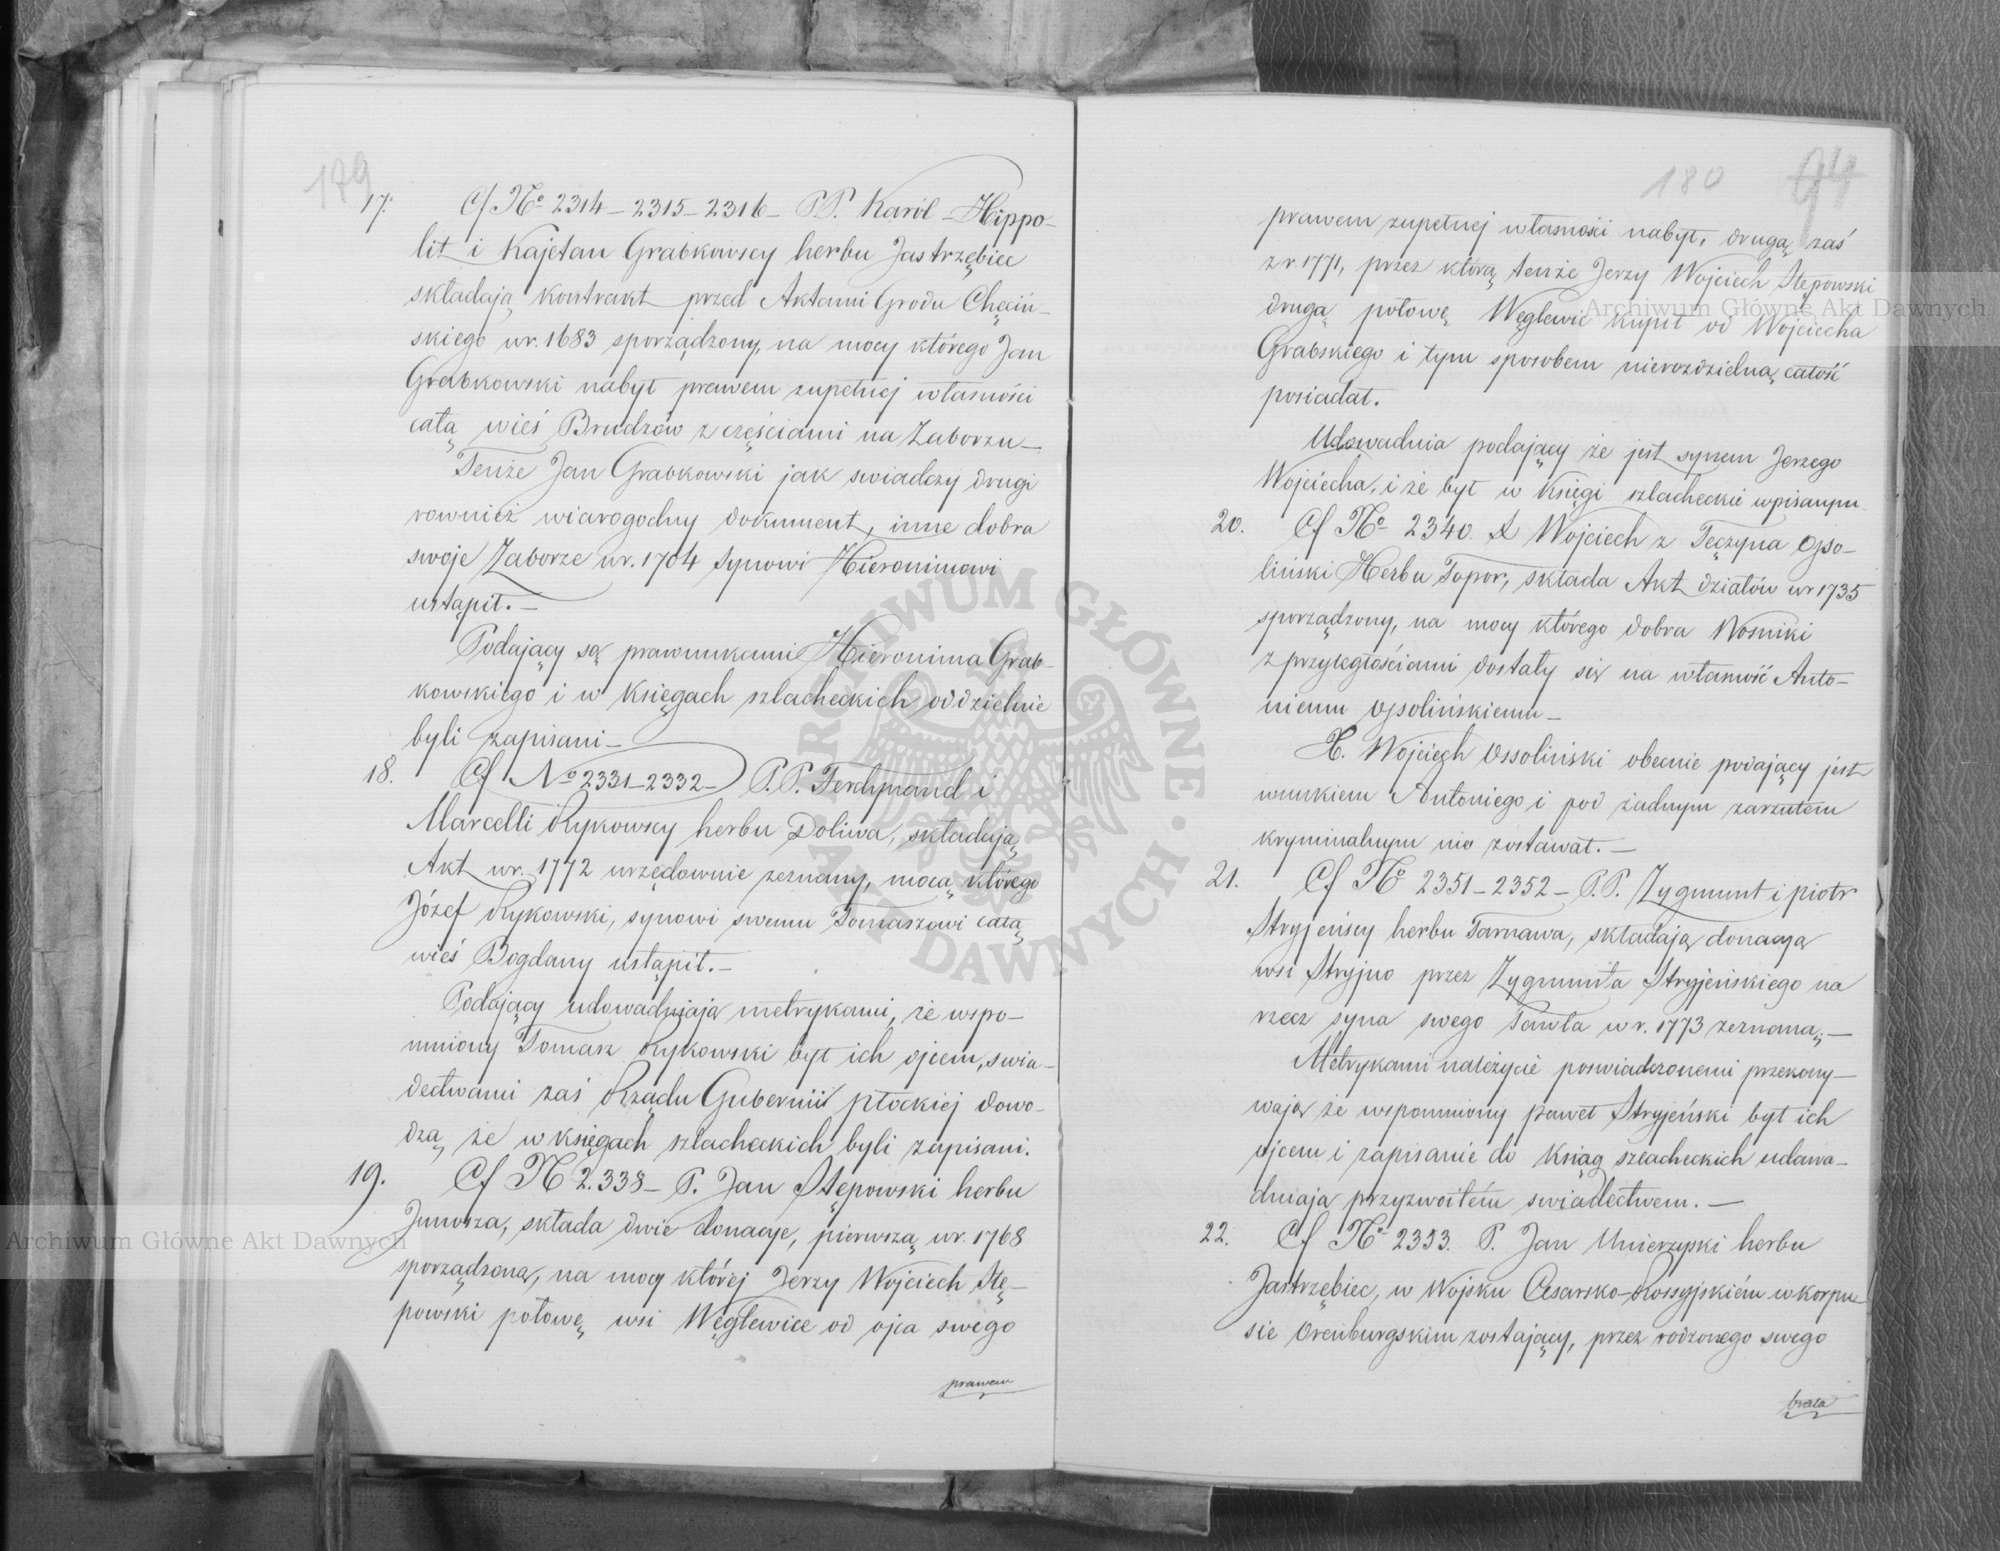 179
17. Cf No 2314–2315–2316– P.P. Karól–Hippo-
lit i Kajetan Grabkowscy herbu Jastrzębiec
składają kontrakt przed Aktami Grodu Chęciń-
skiego w r. 1683 sporządzony, na mocy którego Jan
Grabkowski nabył prawem zupełnej własności
całą wieś Brudzów z częściami na Zaborzu–
Tenże Jan Grabkowski jak swiadczy drugi
rownież wiarogodny dokument, inne dobra
swoje Zaborze w r. 1704 Synowi Hieronimowi
ustąpił.–
Podający są prawnukami Hieronima Grab-
kowskiego i w Księgach szlacheckich oddzielnie
byli zapisani–
18. Cf No 2331–2332– P.P. Ferdynand i
Marcelli Rykowscy herbu Doliwa, składają
Akt w r. 1772 urzędownie zeznany, mocą którego
Józef Rykowski, synowi swemu Tomaszowi całą
wieś Bogdany ustąpił.–
Podający udowadniają metrykami, że wspo-
mniony Tomasz Rykowski był ich ojcem, swia-
dectwami zaś Rządu Gubernii płockiej dowo-
dzą, że w księgach szlacheckich byli zapisani.
19. Cf N 2.338– P. Jan Stępowski herbu
Junosza, składa dwie donacye, pierwszą w r. 1768
sporządzoną, na mocy której Jerzy Wojciech Stę-
powski połowę wsi Węglewice od ojca swego
prawem
180 94
prawem zupełnej własności nabył, drugą zaś
z r. 1771, przez którą tenże Jerzy Wojciech Stępowski
drugą połowę Węglewic kupił od Wojciecha
Grabskiego i tym sposobem nierozdzielną całość
posiadał.
Udowadnia podający że jest synem Jerzego
Wojciecha, i że był w Księgi szlacheckie wpisanym
20. Cf No 2340. X Wojciech z Tęczyna Osso-
liński Herbu Topor, składa Akt działów w r 1735
sporządzony, na mocy którego dobra Wosniki
z przyległościami dostały się na własność Anto-
niemu Ossolińskiemu–
X. Wojciech Ossoliński obecnie podający jest
wnukiem Antoniego i pod żadnym zarzutem
kryminalnym nie zostawał.–
21. Cf No 2351–2352– P.P. Zygmunt i piotr
Stryjeńscy herbu Tarnawa, składają donacyą
wsi Stryjno przez Zygmunta Stryjeńskiego na
rzecz syna swego Pawła w r. 1773 zeznaną;–
Metrykami należycie poswiadczonemi przekony-
wają że wspomniony paweł Stryjeński był ich
ojcem i zapisanie do Ksiąg szlacheckich udawa-
dniają przyzwoitém swiadectwem.–
22. Cf No 2353. P. Jan Unierzyski herbu
Jastrzębiec, w Wojsku Cesarsko–Rossyjskiém w korpu-
sie Orenburgskim zostający, przez rodzonego swego
brata
Archiwum Główne Akt Dawnych
Archiwum Główne Akt Dawnych
ARCHIWUM GŁÓWNE AKT DAWNYCH